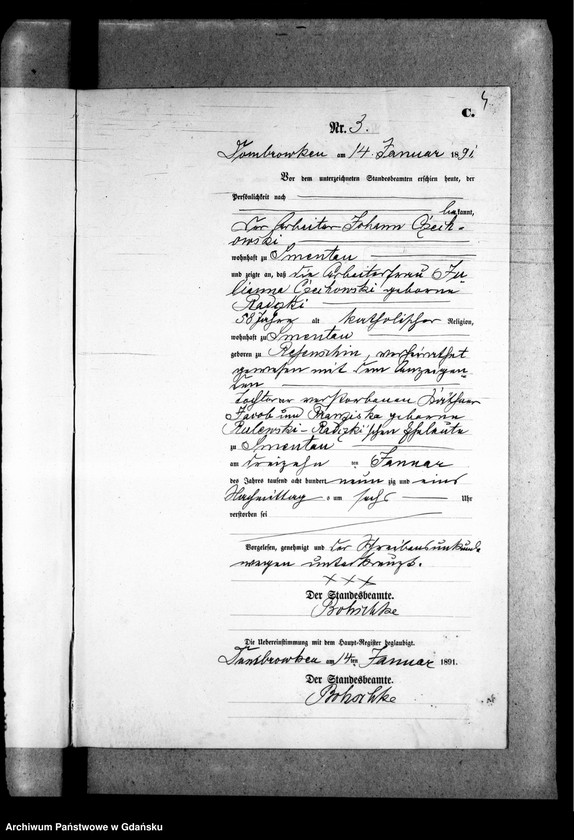 4
C.
Nr. 3.
Dombrowken am 14. Januar 1891
Vor dem unterzeichneten Standesbeamten erschien heute, der
Persönlichkeit nach
bekannt,
der Arbeiter Johann Czech-
owski
wohnhaft zu Smentau
und zeigte an, daß die Arbeiterfrau Ju
lianna Czechowski geborne
Radzki
58 Jahre alt katholischer Religion,
wohnhaft zu Smentau
geboren zu verheirathet
gewesen mit dem Anzeigen-
den
Tochter der verstorbenen Käthner
Jacob und Franziska geborne
Rulewski-Radzki'schen Eheleute
zu Smentau
am dreizehn ten Januar
des Jahres tausend acht hundert neun zig und eins
Nachmittag s um sechs Uhr
verstorben sei
Vorgelesen, genehmigt und der Schreibensunkunde
wegen unterkreuzt.
XXX
Der Standesbeamte.
Die Uebereinstimmung mit dem Haupt-Register beglaubigt.
Dombrowken am 14 ten Januar 1891.
Der Standesbeamte.
Archiwum Państwowe w Gdańsku